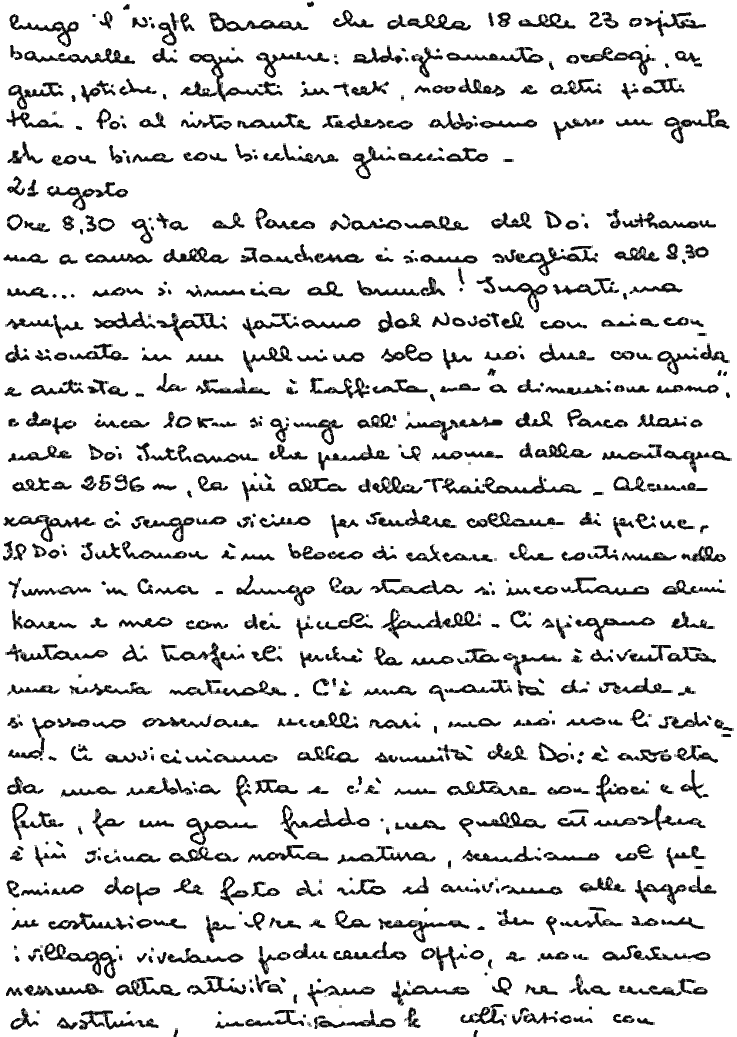 lungo il "Nigth Bazaar" che dalla 18 alle 23 ospita
bancarelle di ogni genere: abbigliamento, orologi, ar
genti, stoiche, elefanti in teck, noodles e altri piatti
thai. Poi al ristorante tedesco abbiamo preso un goula
sh con birra con bicchiere ghiacciato -
21 agosto
Ore 8,30 gita al Parco Nazionale del Doi Inthanon
ma a causa della stanchezza ci siamo svegliati alle 8,30
ma... non si rinuncia al brunch! Ingozzati, ma
sempre soddisfatti partiamo dal Novotel con aria con-
dizionata in un pullmino solo per noi due con guida
e autista - La strada è trafficata, ma "a dimensione uomo",
e dopo circa 10 Km si giunge all'ingresso del Parco Nazio
nale Doi Inthanon che prende il nome dalla montagna
alta 2596 m, la più alta della Thailandia - Alcune
ragazze ci vengono vicino per vendere collane di perline.
Il Doi Inthanon è un blocco di calcare che continua nello
Yunnan in Cina - Lungo la strada si incontrano alcuni
Karen e meo con dei piccoli fardelli - Ci spiegano che
tentano di trasferirli perché la montagna è diventata
una riserva naturale. C'è una quantità di verde e
si possono osservare uccelli rari, ma noi non li vedia-
mo. Ci avviciniamo alla sommità del Doi: è avvolta
da una nebbia fitta e c'è un altare con fiori e of
ferte, fa un gran freddo, ma quella atmosfera
è più vicina alla nostra natura, scendiamo col pul
lmino dopo le foto di rito ed arriviamo alle pagode
in costruzione per il re e la regina. In questa zona
i villaggi vivevano producendo oppio, e non avevano
nessuna altra attività, piano piano il re ha cercato
di sostituire, incentivando le coltivazioni con